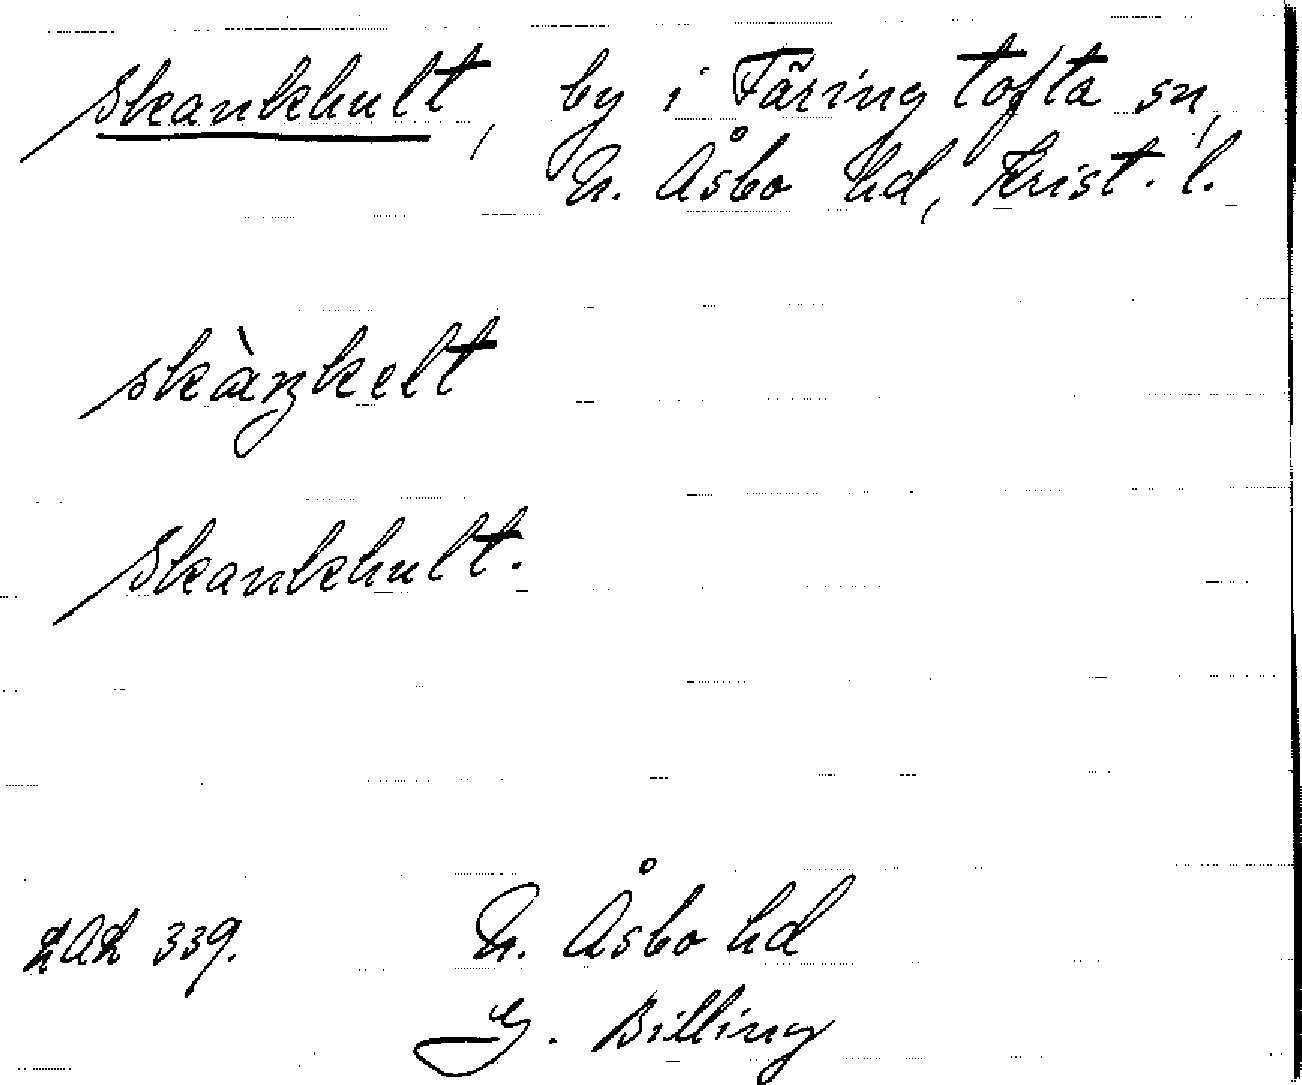 Skankhult, by i Färingtofta sn,
N. Åsbo hd, Krist. l.
skàŋkelt
Skankhult.
LAL 339.
N. Åsbo hd
G. Billing